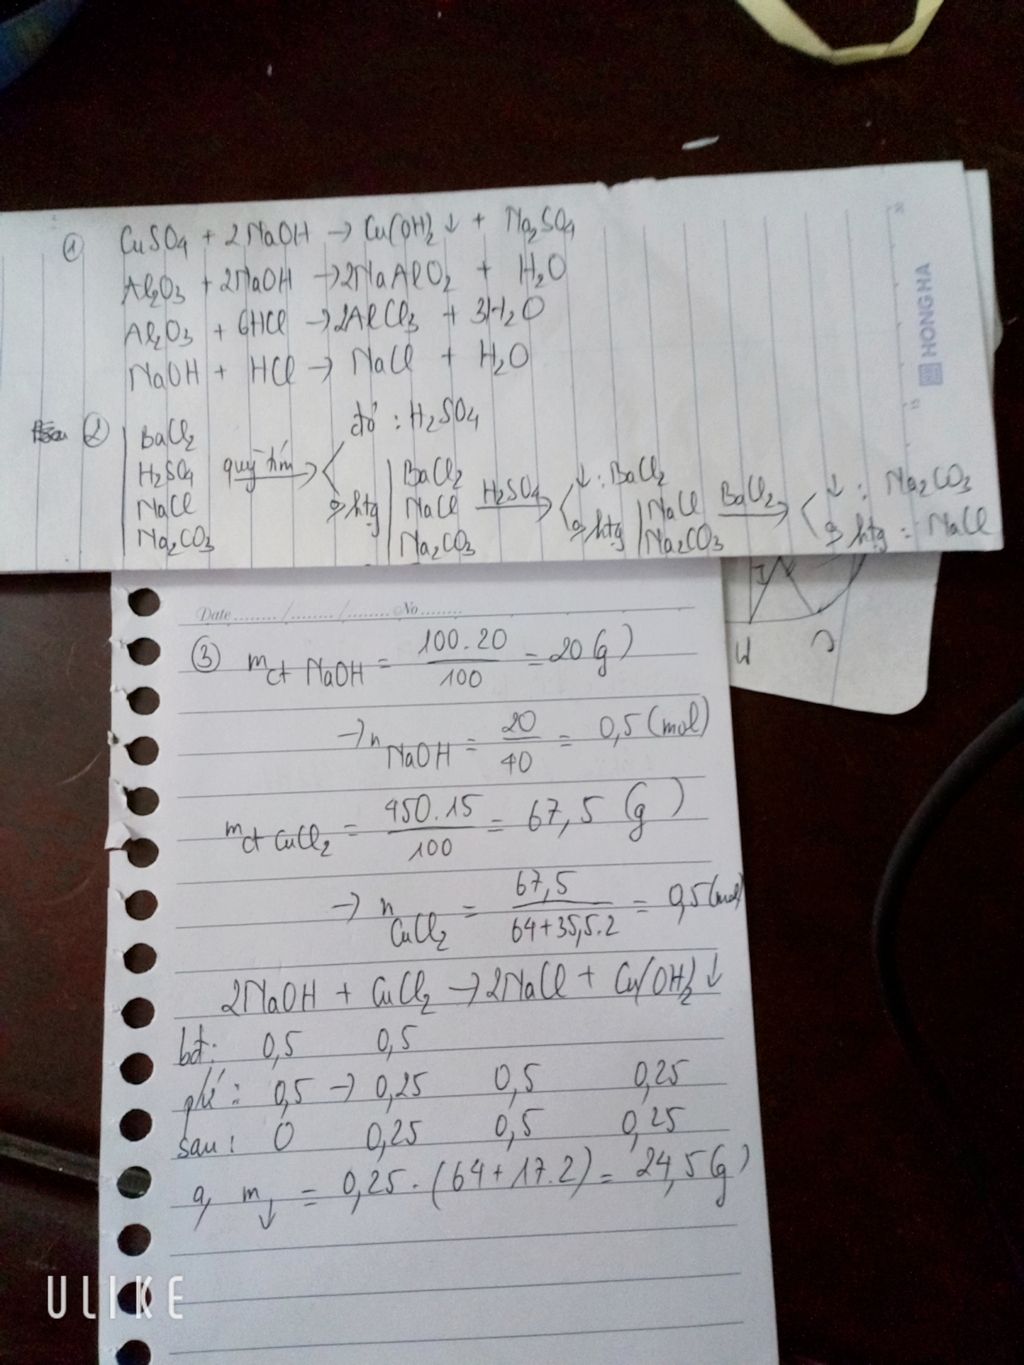 ① CuSO₄ + 2NaOH → Cu(OH)₂↓ + Na₂SO₄
Al₂O₃ + 2NaOH → 2NaAlO₂ + H₂O
Al₂O₃ + 6HCl → 2AlCl₃ + 3H₂O
NaOH + HCl → NaCl + H₂O
②
BaCl₂
H₂SO₄
NaCl
Na₂CO₃
quỳ tím →
đỏ : H₂SO₄
htg
BaCl₂
NaCl
Na₂CO₃
H₂SO₄ →
↓ : BaCl₂
htg
NaCl
Na₂CO₃
BaCl₂ →
↓ : Na₂CO₃
htg : NaCl
HONG HA
Date ......../......../........No........
③ mct NaOH = 100.20/100 = 20(g)
→ nNaOH = 20/40 = 0,5 (mol)
mct CuCl₂ = 450.15/100 = 67,5 (g)
→ nCuCl₂ = 67,5/64+35,5.2 = 0,5 (mol)
2NaOH + CuCl₂ → 2NaCl + Cu(OH)₂↓
bđ: 0,5 0,5
pứ: 0,5 → 0,25 0,5 0,25
sau: 0 0,25 0,5 0,25
a, m↓ = 0,25.(64+17.2) = 24,5(g)
ULIKE